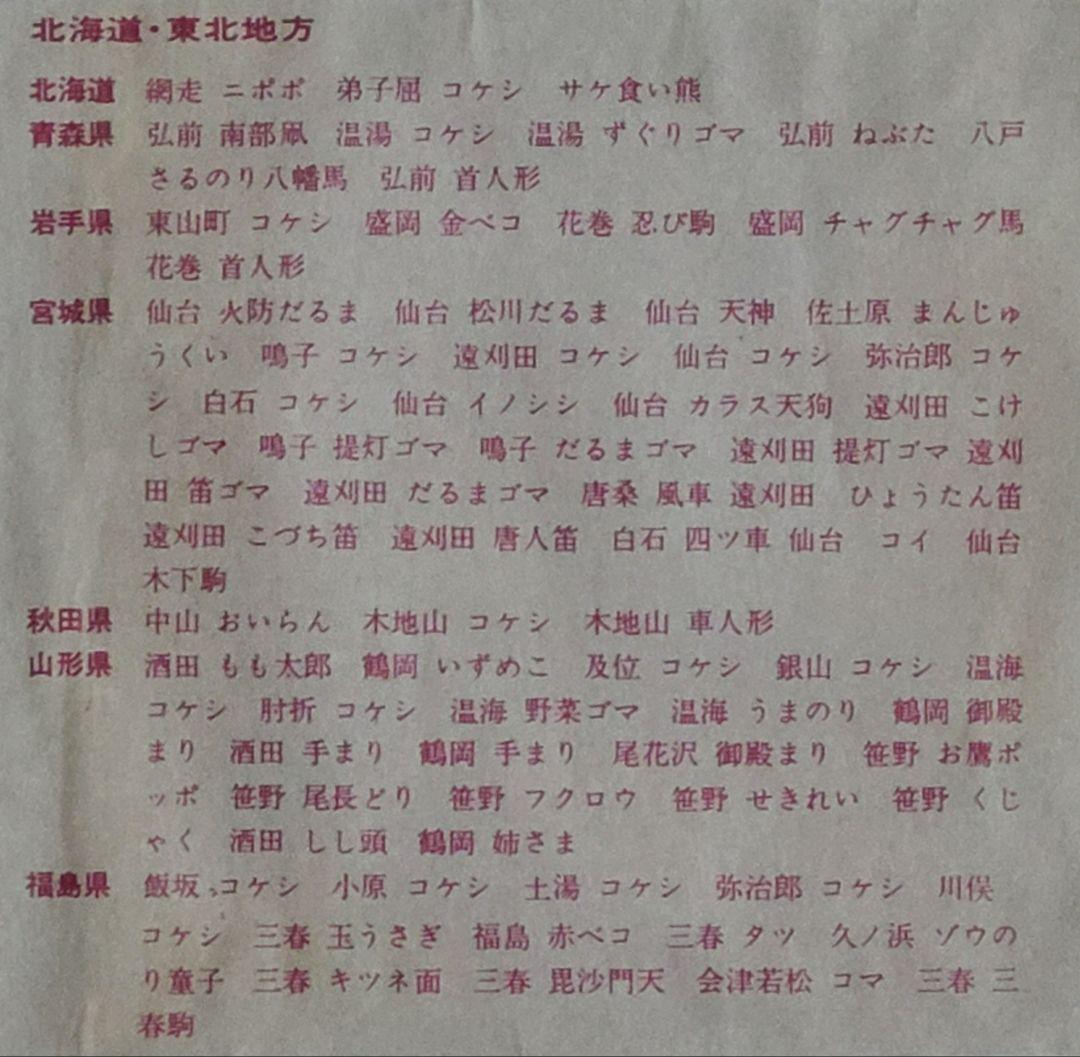 北海道・東北地方
北海道 網走 ニポポ 弟子屈 コケシ サケ食い熊
青森県 弘前 南部凧 温湯 コケシ 温湯 ずぐりゴマ 弘前 ねぶた 八戸
さるのり八幡馬 弘前 首人形
岩手県 東山町 コケシ 盛岡 金ベコ 花巻 忍び駒 盛岡 チャグチャグ馬
花巻 首人形
宮城県 仙台 火防だるま 仙台 松川だるま 仙台 天神 佐土原 まんじゅ
うくい 鳴子 コケシ 遠刈田 コケシ 仙台 コケシ 弥治郎 コケ
シ 白石 コケシ 仙台 イノシシ 仙台 カラス天狗 遠刈田 こけ
しゴマ 鳴子 提灯ゴマ 鳴子 だるまゴマ 遠刈田 提灯ゴマ 遠刈
田 笛ゴマ 遠刈田 だるまゴマ 唐桑 風車 遠刈田 ひょうたん笛
遠刈田 こづち笛 遠刈田 唐人笛 白石 四ツ車 仙台 コイ 仙台
木下駒
秋田県 中山 おいらん 木地山 コケシ 木地山 車人形
山形県 酒田 もも太郎 鶴岡 いずめこ 及位 コケシ 銀山 コケシ 温海
コケシ 肘折 コケシ 温海 野菜ゴマ 温海 うまのり 鶴岡 御殿
まり 酒田 手まり 鶴岡 手まり 尾花沢 御殿まり 笹野 お鷹ポ
ッポ 笹野 尾長どり 笹野 フクロウ 笹野 せきれい 笹野 くじ
ゃく 酒田 しし頭 鶴岡 姉さま
福島県 飯坂 コケシ 小原 コケシ 土湯 コケシ 弥治郎 コケシ 川俣
コケシ 三春 玉うさぎ 福島 赤ベコ 三春 タツ 久ノ浜 ゾウの
り童子 三春 キツネ面 三春 毘沙門天 会津若松 コマ 三春 三
春駒